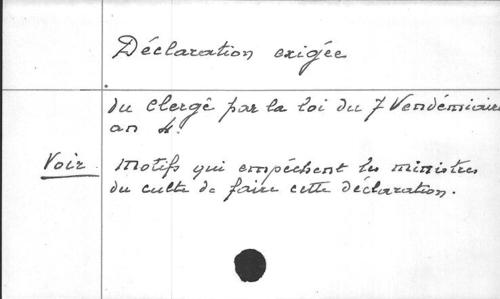 Déclaration exigée
du clergé par la loi du 7 Vendémiaire
an 4.
Voir Motifs qui empêchent les ministres
du culte de faire cette déclaration.